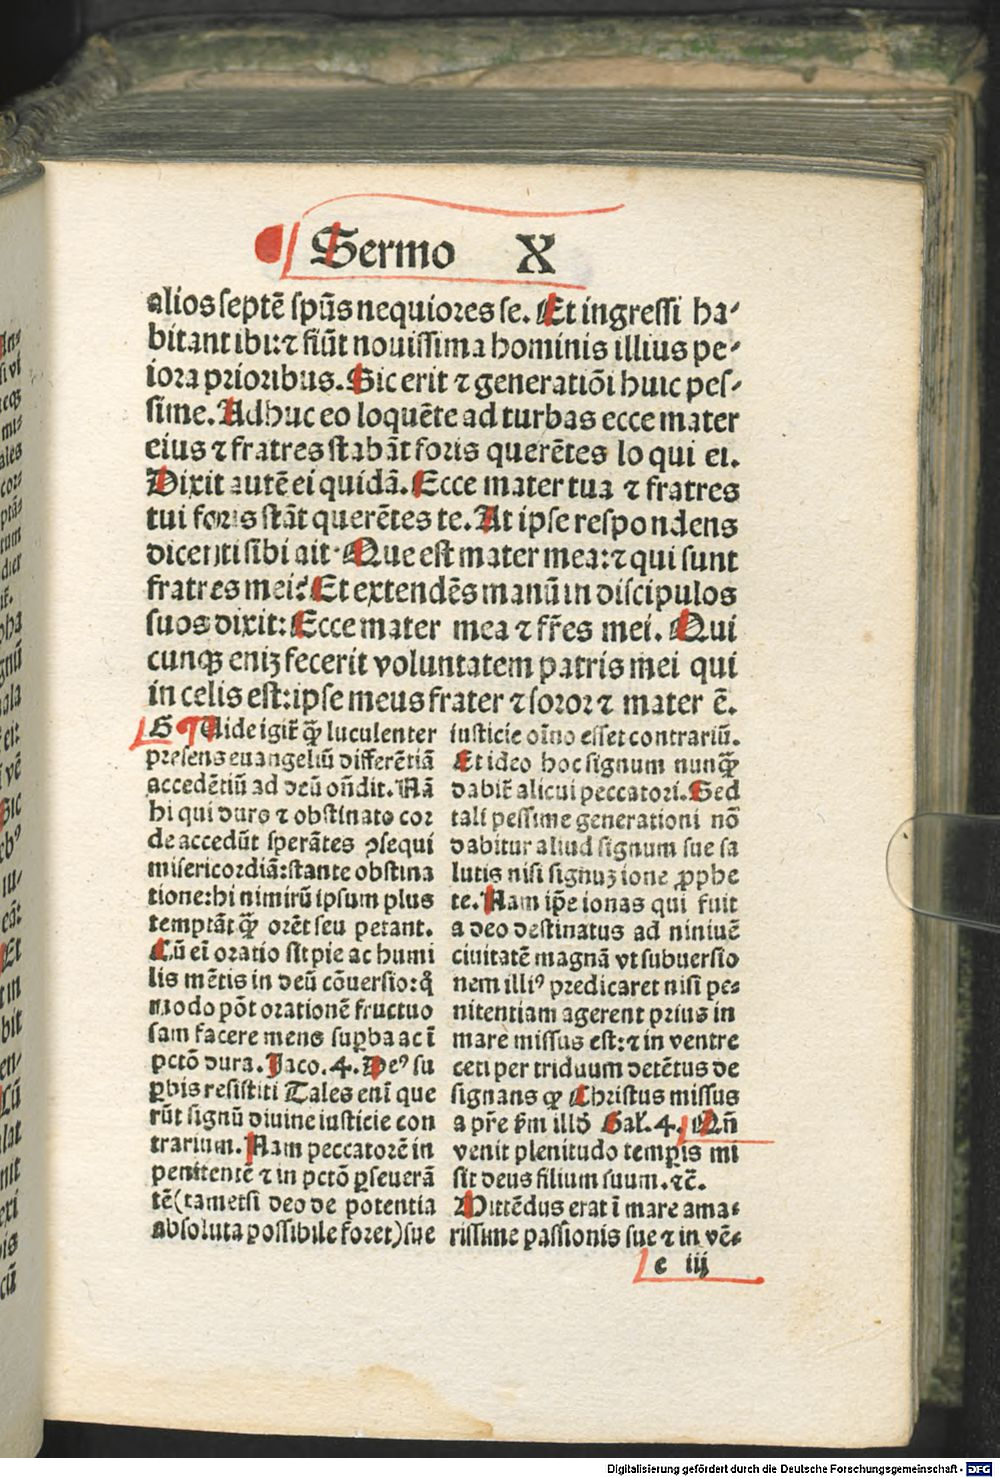 Sermo X
alios septē spūs nequiores se. Et ingressi ha⸗
bitant ibi: ⁊ fiūt nouissima hominis illius pe⸗
iora prioribus. Sic erit ⁊ generatiōi huic pes⸗
sime. Adhuc eo loquēte ad turbas ecce mater
eius ⁊ fratres stabāt foris querētes loqui ei.
Dixit autē ei quidā. Ecce mater tua ⁊ fratres
tui foris stāt querētes te. At ipse respondens
dicenti sibi ait. Que est mater mea: ⁊ qui sunt
fratres mei? Et extendēs manū in discipulos
suos dixit: Ecce mater mea ⁊ fr̄es mei. Qui
cunqꝫ enīꝫ fecerit voluntatem patris mei qui
in celis est: ipse meus frater ⁊ soror ⁊ mater ē.
G ¶ Uide igit̄ qꝫ̄ luculenter
presens euangeliū differētiā
accedētiū ad deū oñdit. Nā
hi qui duro ⁊ obstinato cor
de accedūt sperātes ꝯsequi
misericordiā: stante obstina
tione: hi nimirū ipsum plus
temptāt qꝫ̄ orēt seu petant.
Cū ei oratio sit pie ac humi
lis mētis in deū cōuersio: q̊
modo pōt orationē fructuo
sam facere mens suꝑba ac ī
pctō dura. Jaco. 4. Deꝰ su
ꝑbis resistit. Tales enī que
rūt signū diuine iusticie con
trarium. Nam peccatorē in
penitentē ⁊ in pctō ꝑseuerā
tē (tametsi deo de potentia
absoluta possibile foret) sue
iusticie oīno esset contrariū.
Et ideo hoc signum nunqꝫ̄
dabit̄ alicui peccatori. Sed
tali pessime generationi nō
dabitur aliud signum sue sa
lutis nisi signuꝫ ione ꝓphe
te. Nam ip̄e ionas qui fuit
a deo destinatus ad niniuē
ciuitatē magnā vt subuersio
nem illiꝰ predicaret nisi pe⸗
nitentiam agerent prius in
mare missus est: ⁊ in ventre
ceti per triduum detētus de
signans ꝙ Christus missus
a pr̄e fm illđ Gal. 4. Qñ
venit plenitudo tempꝑis mi
sit deus filium suum. ⁊c̄.
Mittēdus erat ī mare ama⸗
rissime passionis sue ⁊ in vē⸗
e iij
Digitalisierung gefördert durch die Deutsche Forschungsgemeinschaft - DFG